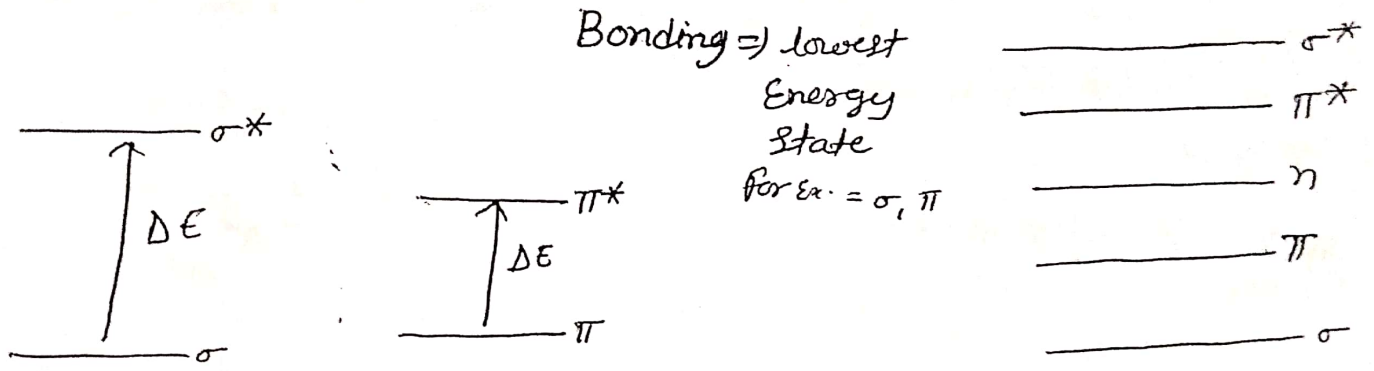 σ*
ΔE
σ
π*
ΔE
π
Bonding ⇒ lowest
Energy
State
for Ex. = σ, π
σ*
π*
n
π
σ